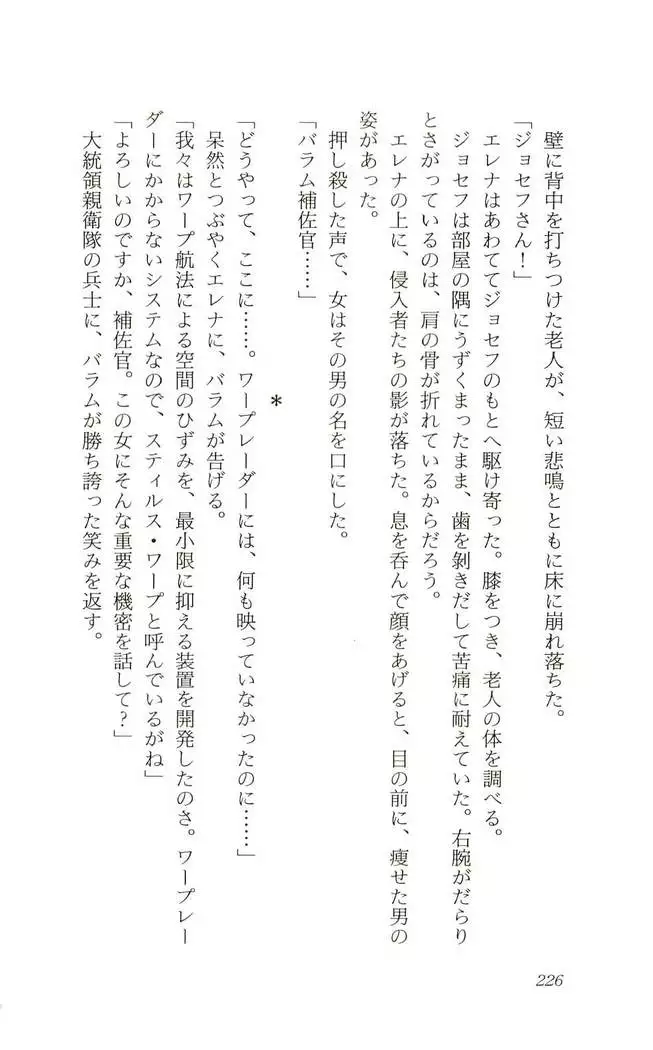 壁に背中を打ちつけた老人が、短い悲鳴とともに床に崩れ落ちた。
「ジョセフさん！」
　エレナはあわててジョセフのもとへ駆け寄った。膝をつき、老人の体を調べる。
　ジョセフは部屋の隅にうずくまったまま、歯を剝きだして苦痛に耐えていた。右腕がだらり
とさがっているのは、肩の骨が折れているからだろう。
　エレナの上に、侵入者たちの影が落ちた。息を呑んで顔をあげると、目の前に、痩せた男の
姿があった。
　押し殺した声で、女はその男の名を口にした。
「バラム補佐官……」
＊
「どうやって、ここに……。ワープレーダーには、何も映っていなかったのに……」
　呆然とつぶやくエレナに、バラムが告げる。
「我々はワープ航法による空間のひずみを、最小限に抑える装置を開発したのさ。ワープレー
ダーにかからないシステムなので、スティルス・ワープと呼んでいるがね」
「よろしいのですか、補佐官。この女にそんな重要な機密を話して？」
　大統領親衛隊の兵士に、バラムが勝ち誇った笑みを返す。
226